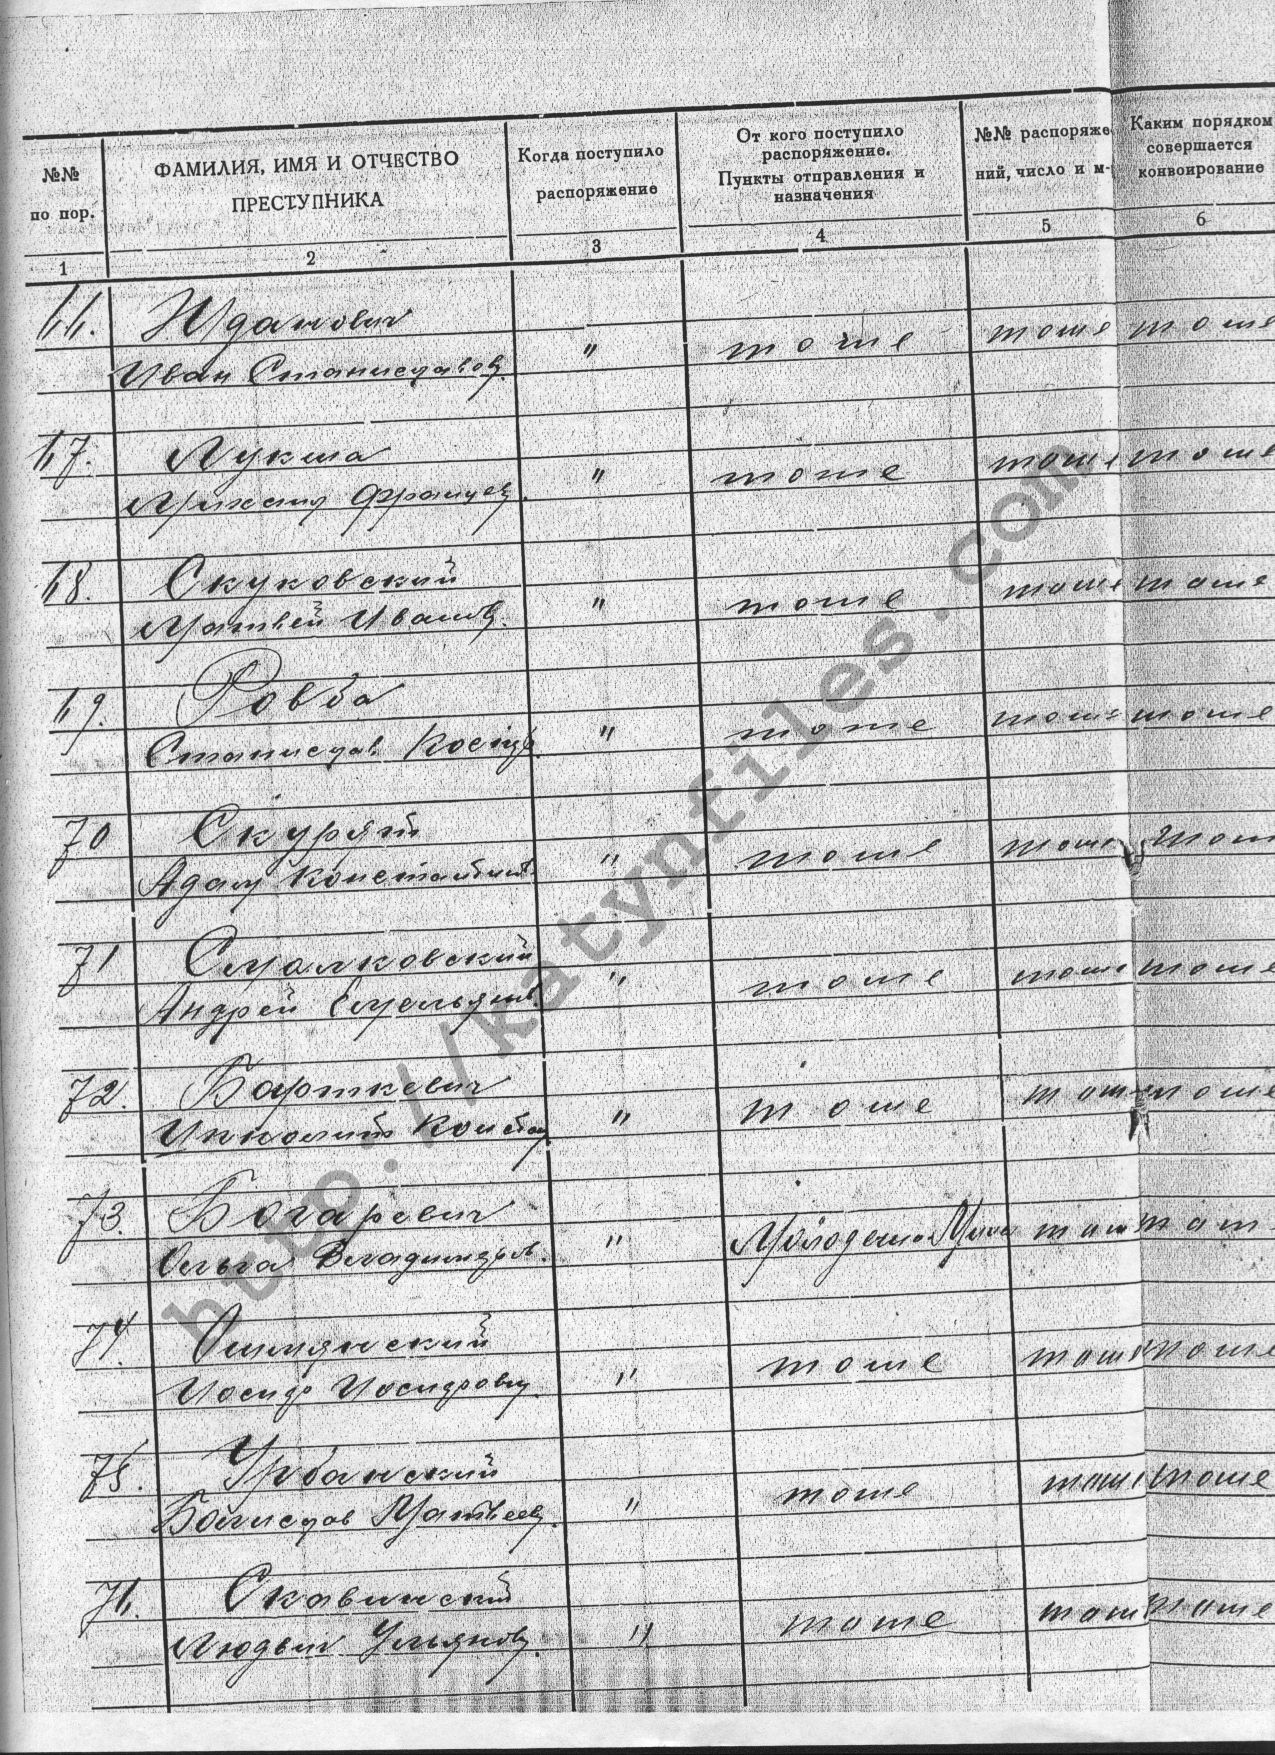 №№ по пор. ФАМИЛИЯ, ИМЯ И ОТЧЕСТВО ПРЕСТУПНИКА Когда поступило распоряжение От кого поступило распоряжение. Пункты отправления и назначения №№ распоряже ний, число и м- Каким порядком совершается конвоирование
1 2 3 4 5 6
66. Жданович
Иван Станиславов. " тоже тоже тоже
67. Лукша
Михаил Францев. " тоже тоже тоже
68. Скуковский
Матвей Иванов. " тоже тоже тоже
69. Ровба
Станислав " тоже тоже тоже
70 Скурят
Адам Константинов " тоже тоже тоже
71 Смалковский
Андрей Емельянов. " тоже тоже тоже
72. Барткевич
Ипполит " тоже тоже тоже
73. Богаревич
Ольга Владимиров. " тоже тож
74. Ошмянский
Иосиф Иосифович. " тоже тоже тоже
75. Урбанский
Болислав Матвеев. " тоже тоже тоже
76. Скавинский
Людвиг Ульянов. " тоже тоже тоже
http://katynfiles.com